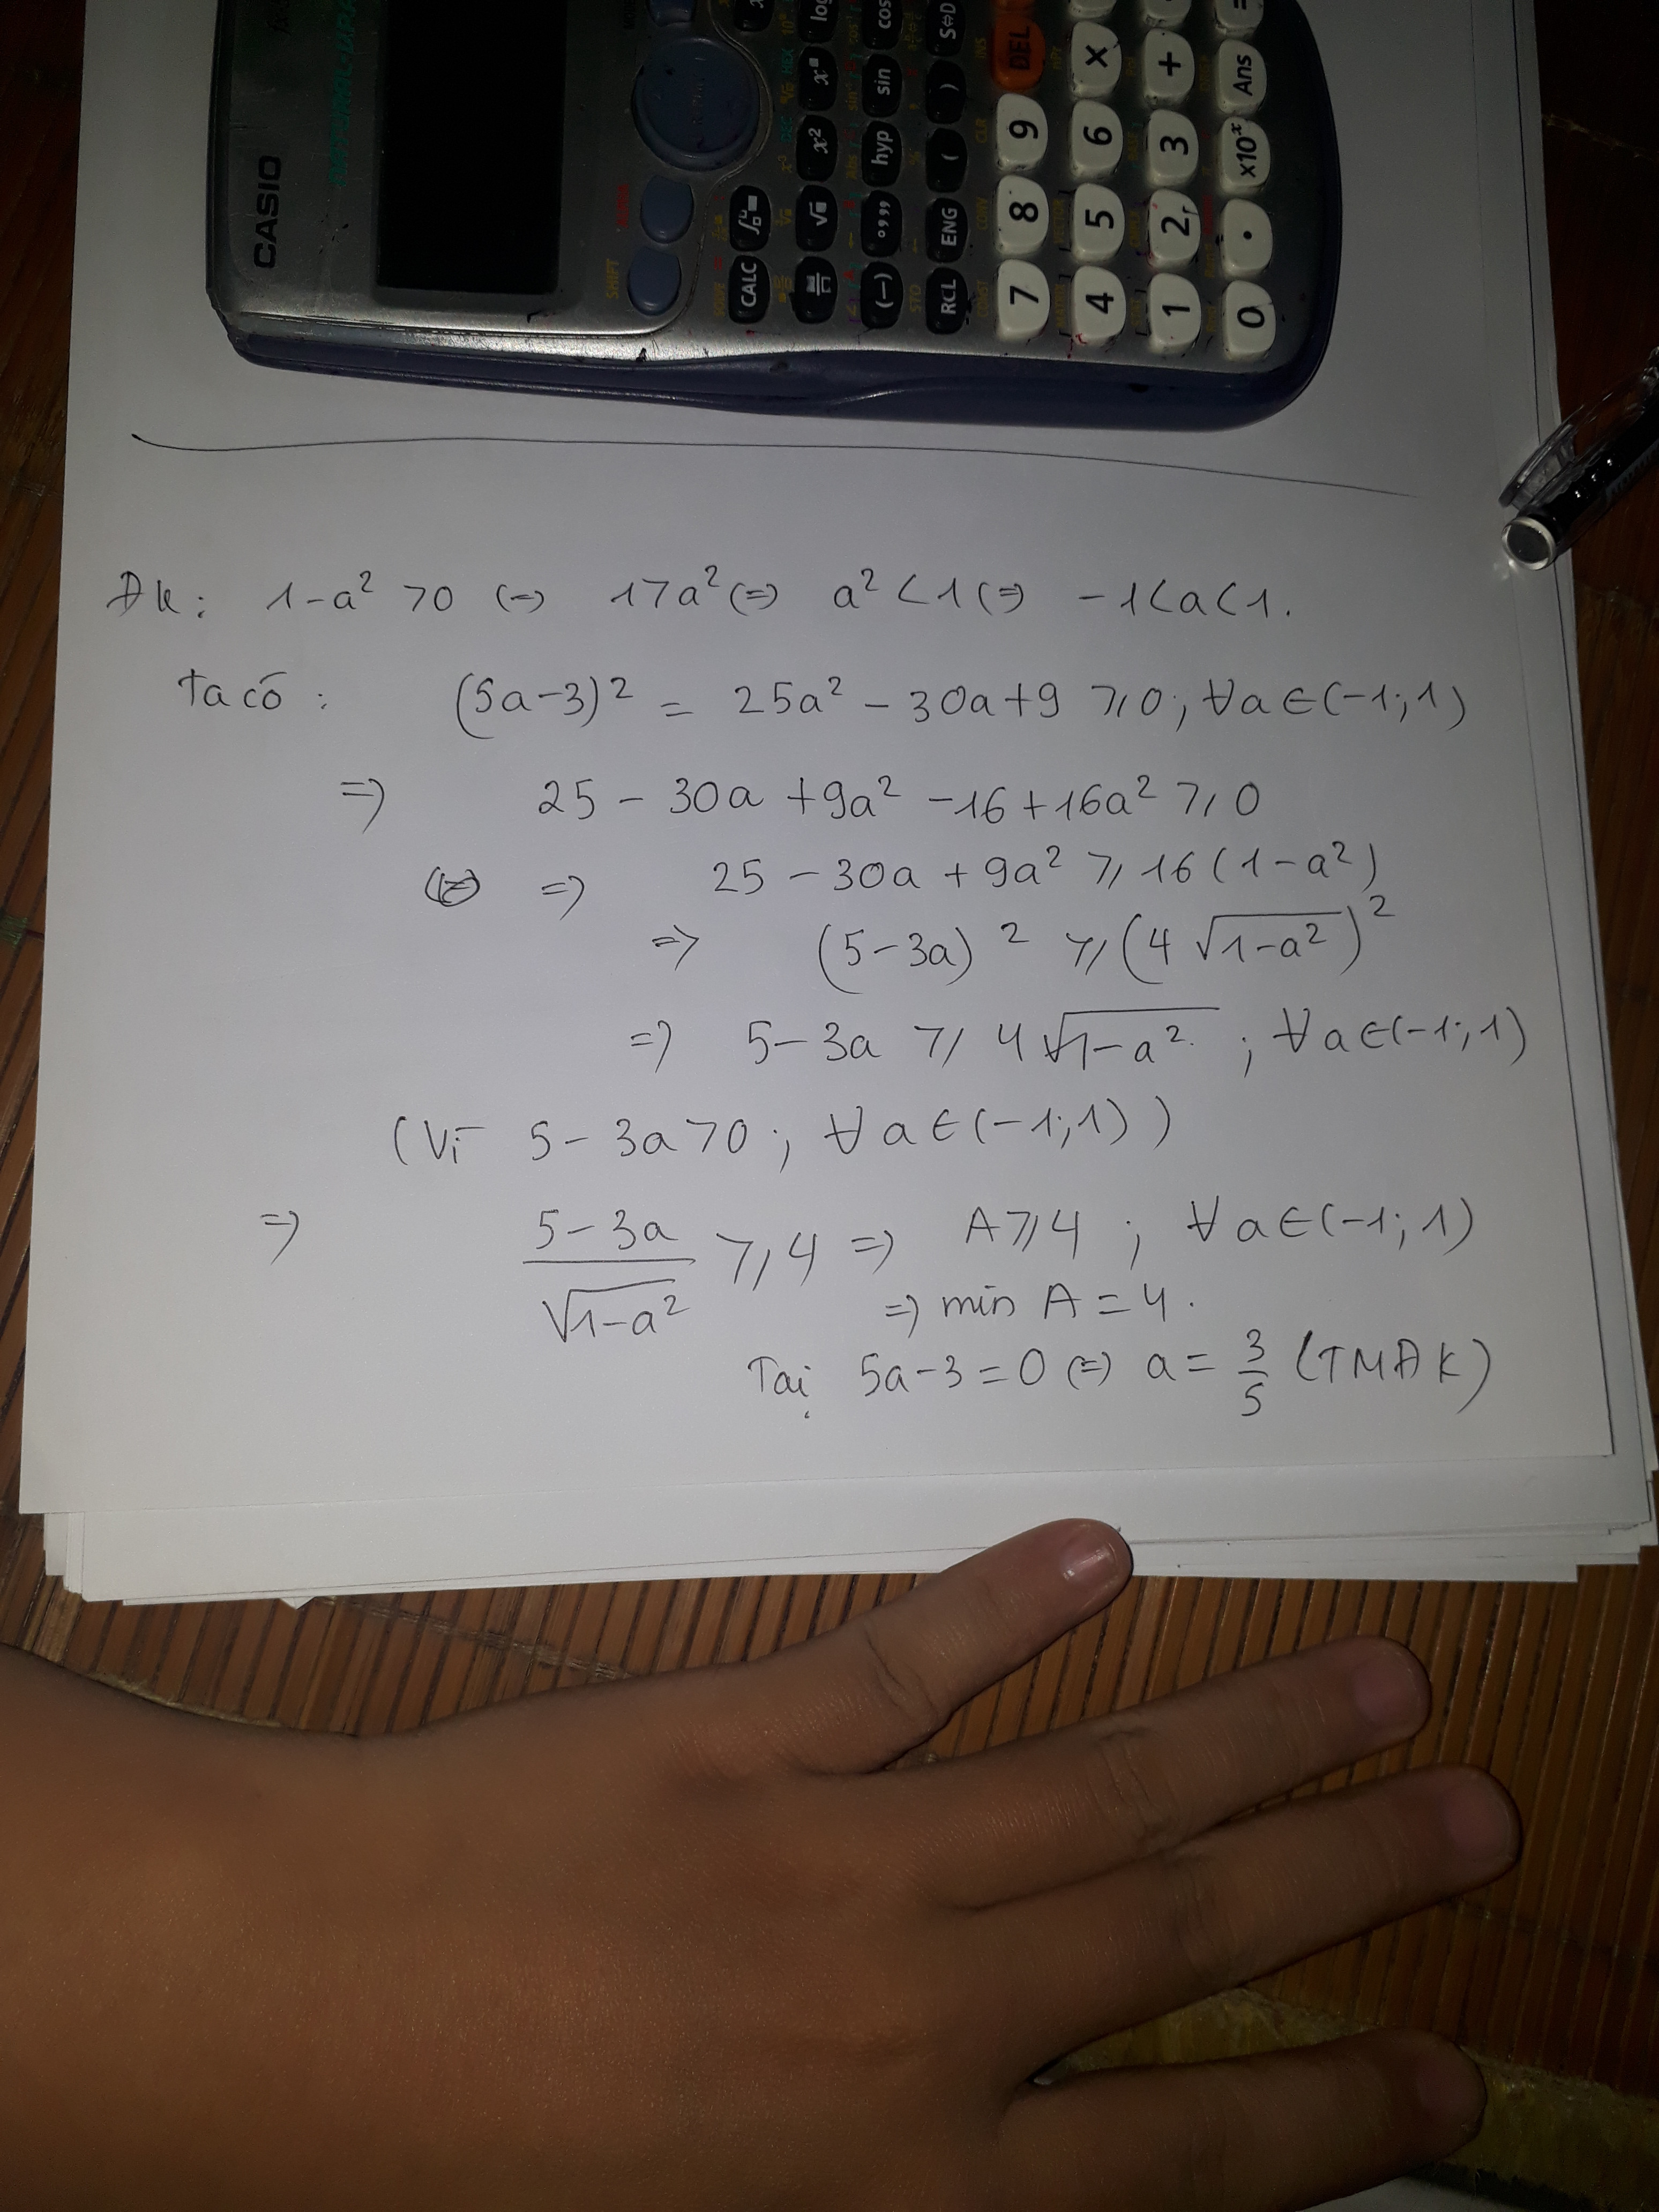 CASIO
NATURAL-V.P.A.M.
SHIFT
CALC
hyp sin cos
RCL ENG ( ) S⇔D
7 8 9 DEL
4 5 6 ×
1 2 3 +
0 . ×10ˣ Ans =
ĐK: 1-a² >0 (=) 1>a² (=) a² <1 (=) -1<a<1.
Ta có : (5a-3)² = 25a² - 30a+9 ≥0; ∀a∈(-1;1)
=> 25 - 30a +9a² -16+16a² ≥ 0
=> 25 - 30a + 9a² ≥ 16(1-a²)
=> (5-3a)² ≥ (4√(1-a²))²
=> 5-3a ≥ 4√(1-a²) ; ∀a∈(-1;1)
(Vì 5-3a>0 ; ∀a∈(-1;1))
=> (5-3a)/√(1-a²) ≥ 4 => A≥4 ; ∀a∈(-1;1)
=> min A = 4.
Tại 5a-3=0 (=) a= 3/5 (TMĐK)